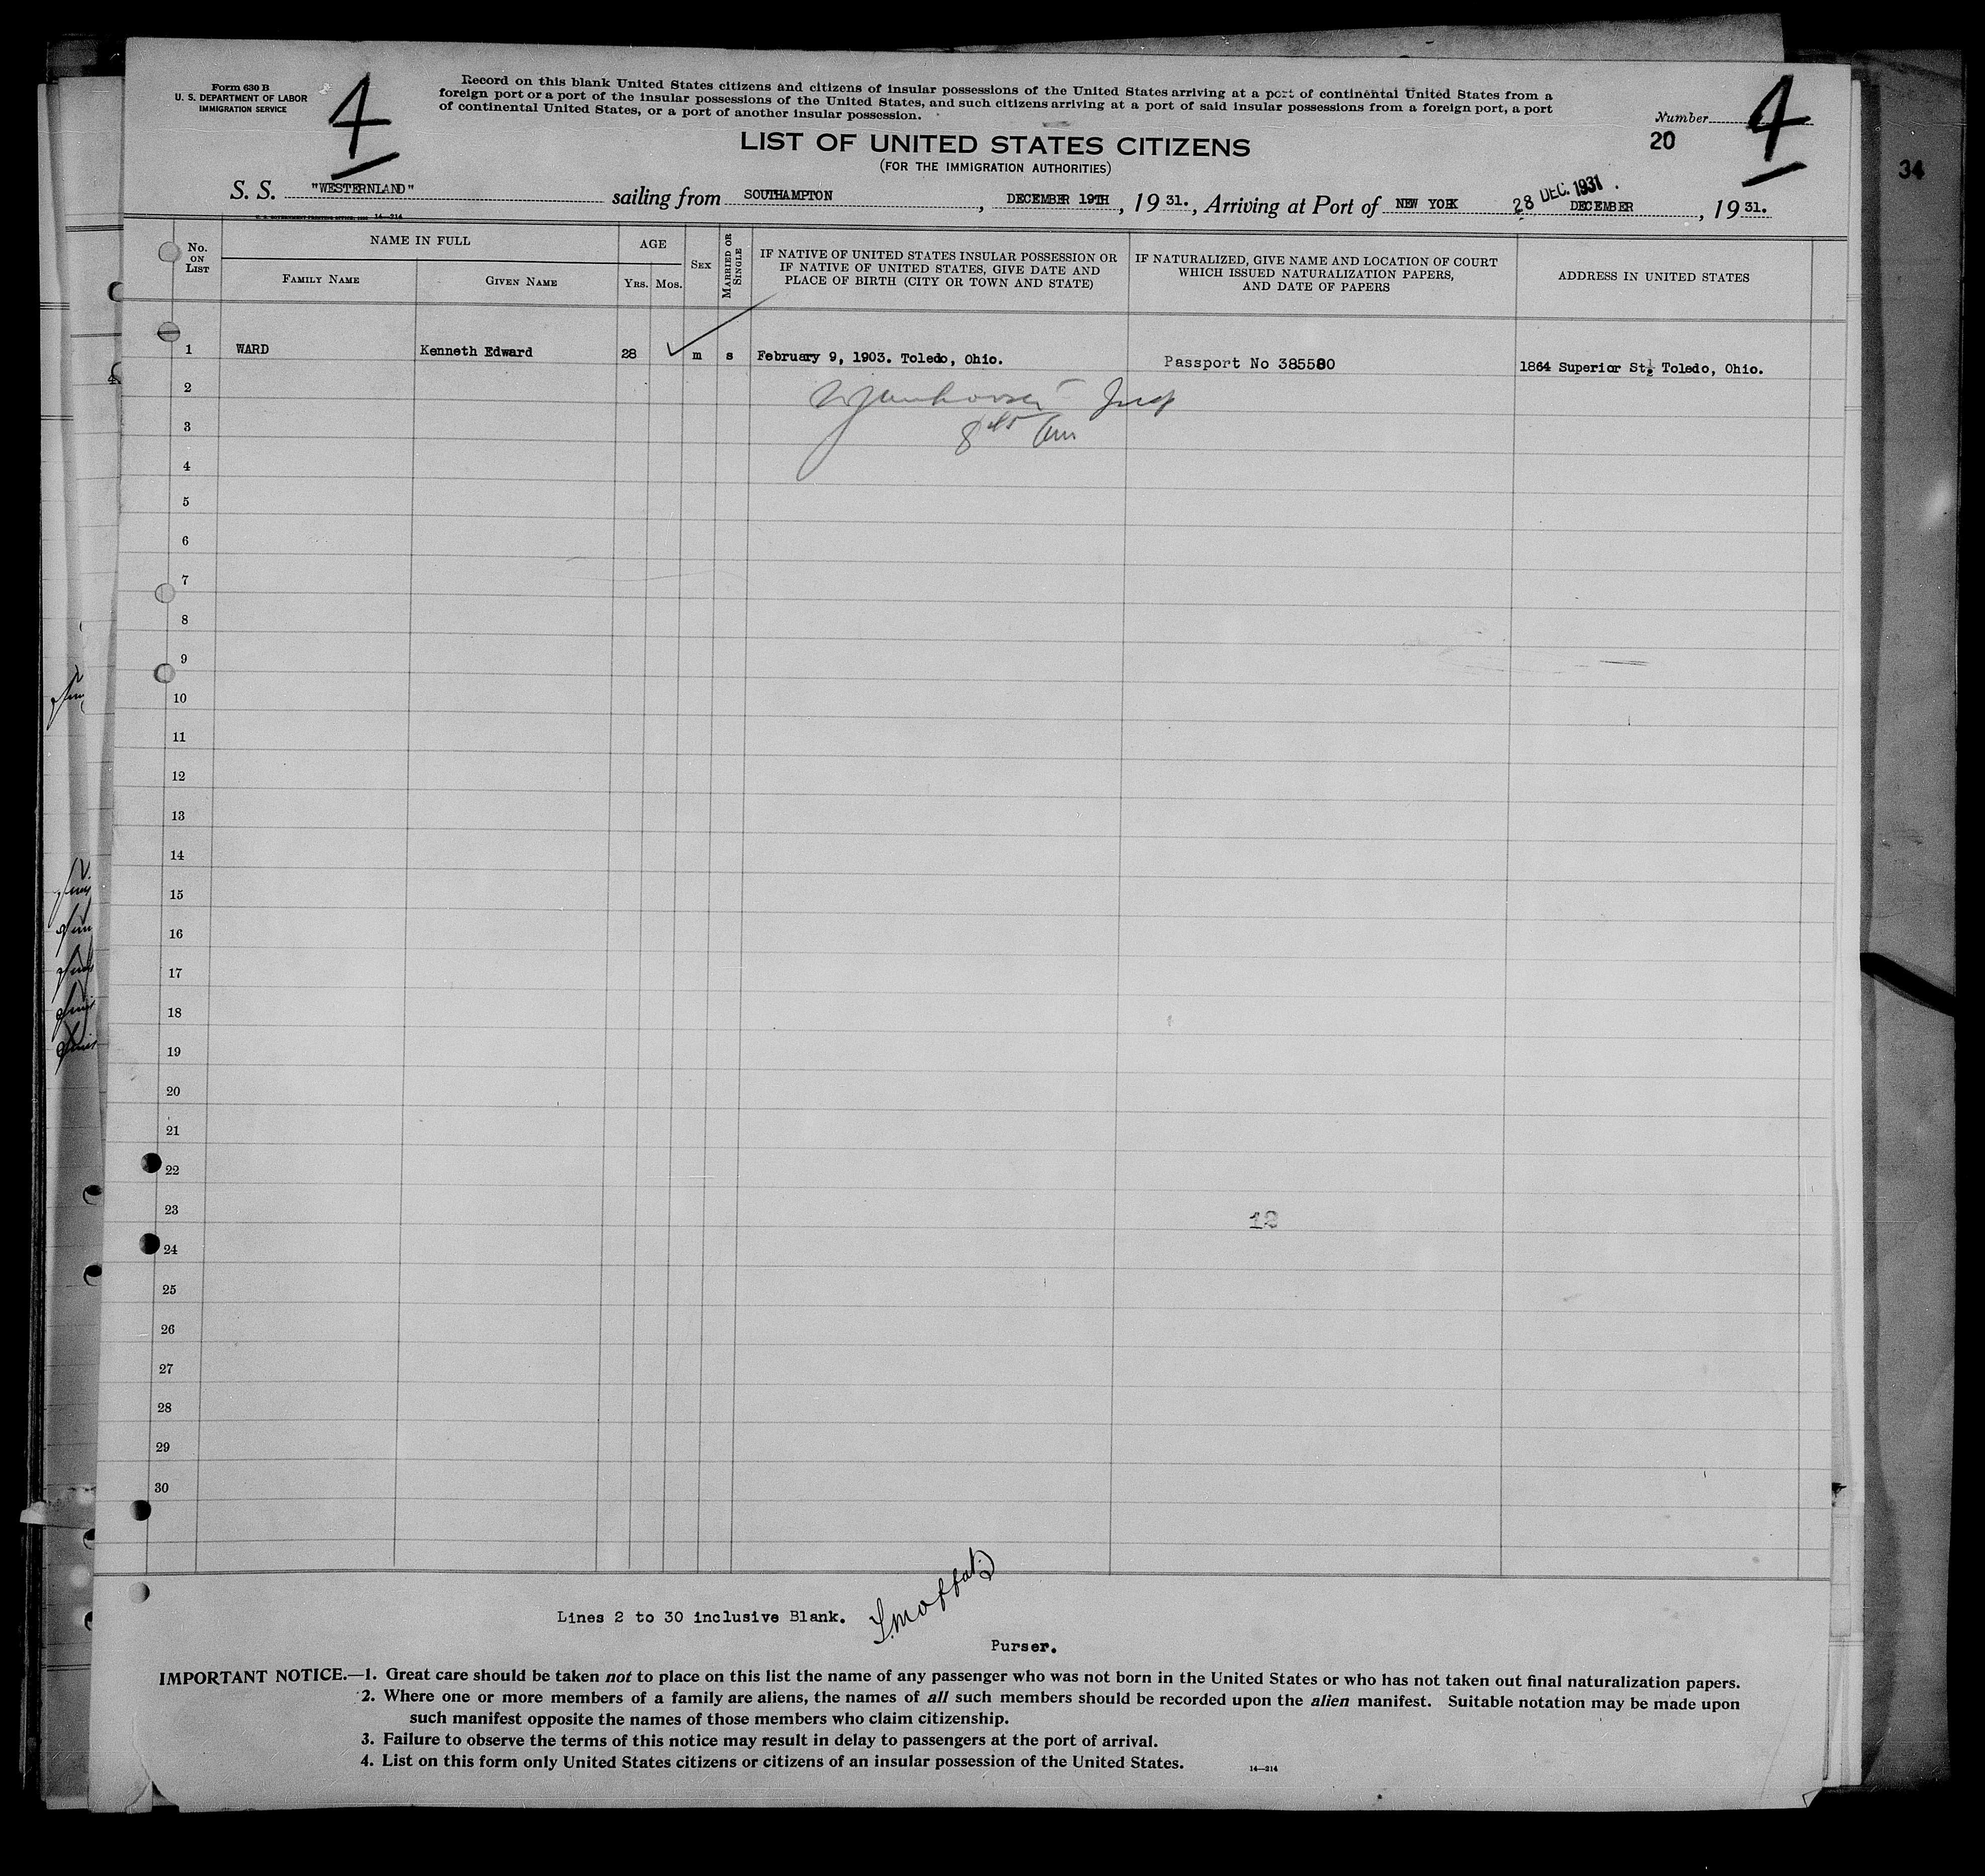 Form 630 B
U. S. DEPARTMENT OF LABOR
IMMIGRATION SERVICE
4
Record on this blank United States citizens and citizens of insular possessions of the United States arriving at a port of continental United States from a
foreign port or a port of the insular possessions of the United States, and such citizens arriving at a port of said insular possessions from a foreign port, a port
of continental United States, or a port of another insular possession.
Number 4
20
34
LIST OF UNITED STATES CITIZENS
(FOR THE IMMIGRATION AUTHORITIES)
28 DEC. 1931
S. S. "WESTERNLAND" sailing from SOUTHAMPTON, DECEMBER 19TH, 19 31., Arriving at Port of NEW YORK DECEMBER, 19 31.
14—214
No. ON LIST
NAME IN FULL
FAMILY NAME
GIVEN NAME
AGE
YRS. MOS.
SEX
MARRIED OR SINGLE
IF NATIVE OF UNITED STATES INSULAR POSSESSION OR
IF NATIVE OF UNITED STATES, GIVE DATE AND
PLACE OF BIRTH (CITY OR TOWN AND STATE)
IF NATURALIZED, GIVE NAME AND LOCATION OF COURT
WHICH ISSUED NATURALIZATION PAPERS,
AND DATE OF PAPERS
ADDRESS IN UNITED STATES
1 WARD Kenneth Edward 28 m s February 9, 1903. Toledo, Ohio. Passport No 385580 1864 Superior St, Toledo, Ohio.
2
3
4
5
6
7
8
9
10
11
12
13
14
15
16
17
18
19
20
21
22
23
12
24
25
26
27
28
29
30
Lines 2 to 30 inclusive Blank.
Purser.
IMPORTANT NOTICE.—1. Great care should be taken not to place on this list the name of any passenger who was not born in the United States or who has not taken out final naturalization papers.
2. Where one or more members of a family are aliens, the names of all such members should be recorded upon the alien manifest. Suitable notation may be made upon
such manifest opposite the names of those members who claim citizenship.
3. Failure to observe the terms of this notice may result in delay to passengers at the port of arrival.
4. List on this form only United States citizens or citizens of an insular possession of the United States.
14—214